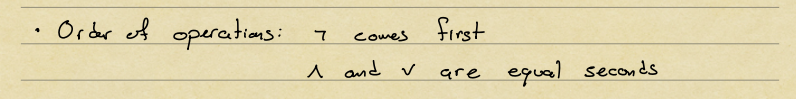 · Order of operations: ¬ comes first
∧ and ∨ are equal seconds